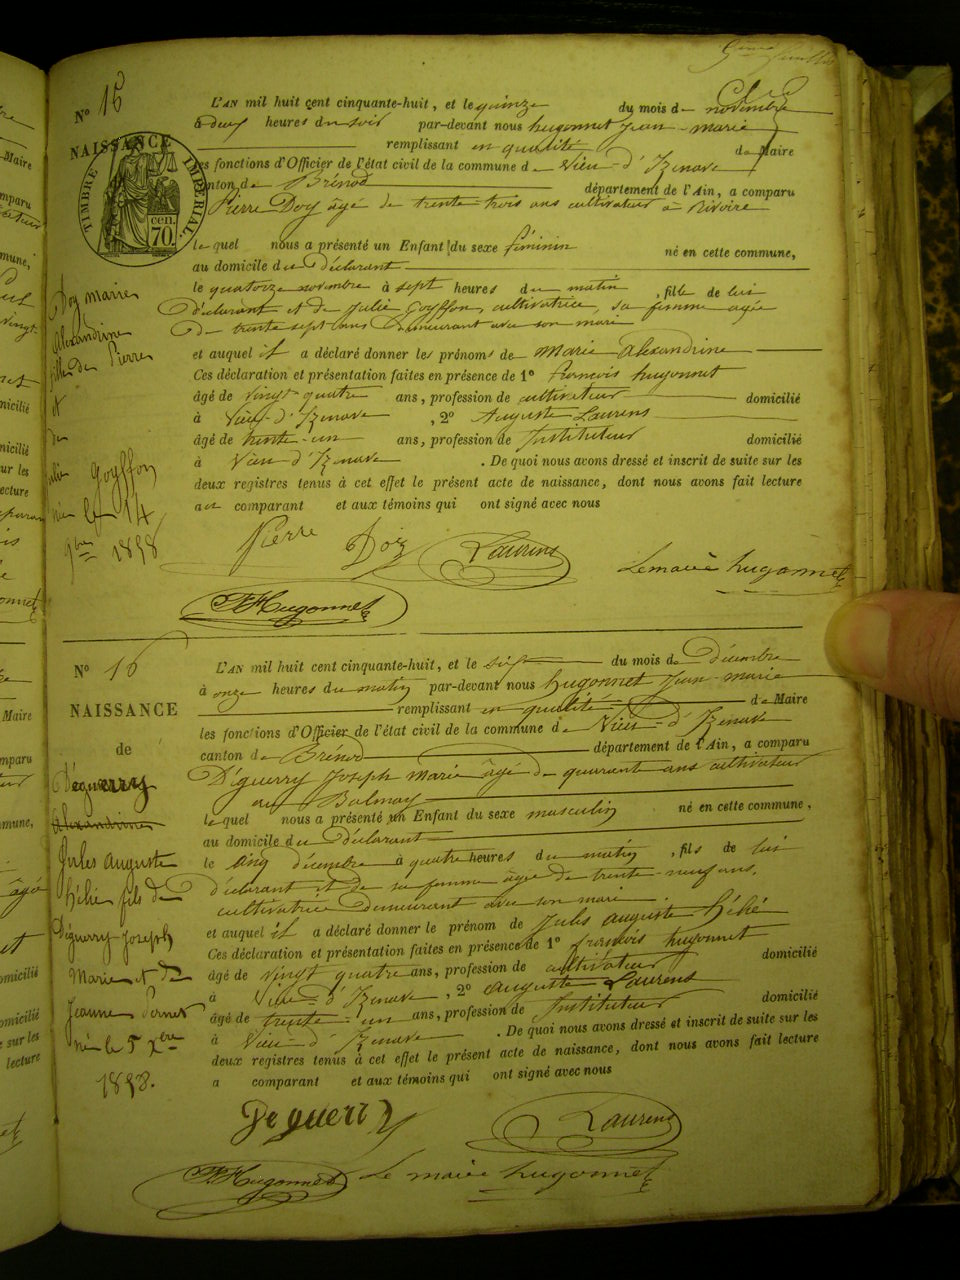 5ème feuillet
N° 15
NAISSANCE
TIMBRE IMPÉRIAL
70. cen
L'AN mil huit cent cinquante-huit, et le quinze du mois de novembre
à deux heures du soir par-devant nous hugonnet jean-marie
remplissant en qualité de Maire
les fonctions d'Officier de l'état civil de la commune de Vieu-d'Izenave
canton de Brénod département de l'Ain, a comparu
Pierre Doy âgé de trente-trois ans cultivateur à Rivoire
lequel nous a présenté un Enfant du sexe féminin né en cette commune,
au domicile du Déclarant
le quatorze novembre à sept heures du matin, fille de lui
Déclarant et de Julie Goyffon, cultivatrice, sa femme agée
De trente sept ans Demeurant avec son mari
et auquel il a déclaré donner les prénoms de Marie Alexandrine
Ces déclaration et présentation faites en présence de 1° françois hugonnet
âgé de vingt-quatre ans, profession de cultivateur domicilié
à Vieu-d'Izenave, 2° Auguste Laurens
âgé de trente-un ans, profession de Instituteur domicilié
à Vieu d'Izenave. De quoi nous avons dressé et inscrit de suite sur les
deux registres tenus à cet effet le présent acte de naissance, dont nous avons fait lecture
au comparant et aux témoins qui ont signé avec nous
Doy marie
Alexandrine
fille de Pierre
et
de
julie Goyffon
née le 14
9bre 1858
Pierre Doy Laurens
Le maire hugonnet
F. Hugonnet
N° 16
NAISSANCE
de
Déguerry
Alexandrine
Jules auguste
hélié fils de
Déguerry Joseph
Marie et de
Jeanne Pernet
né le 5 Xbre
1858.
L'AN mil huit cent cinquante-huit, et le six du mois de Décembre
à onze heures du matin par-devant nous hugonnet Jean-marie
remplissant en qualité de Maire
les fonctions d'Officier de l'état civil de la commune de Vieu-d'Izenave
canton de Brénod département de l'Ain, a comparu
Déguerry Joseph Marie âgé de quarante ans cultivateur
au Balmay
lequel nous a présenté un Enfant du sexe masculin né en cette commune,
au domicile du Déclarant
le cinq décembre à quatre heures du matin, fils de lui
Déclarant et de sa femme âgée de trente-neuf ans,
cultivatrice Demeurant avec son mari
et auquel il a déclaré donner le prénom de Jules auguste hélié
Ces déclaration et présentation faites en présence de 1° françois hugonnet
âgé de vingt quatre ans, profession de cultivateur domicilié
à Vieu-d'Izenave, 2° auguste Laurens
âgé de trente-un ans, profession de Instituteur domicilié
à Vieu-d'Izenave. De quoi nous avons dressé et inscrit de suite sur les
deux registres tenus à cet effet le présent acte de naissance, dont nous avons fait lecture
a comparant et aux témoins qui ont signé avec nous
Deguerry Laurens
F. Hugonnet Le maire hugonnet